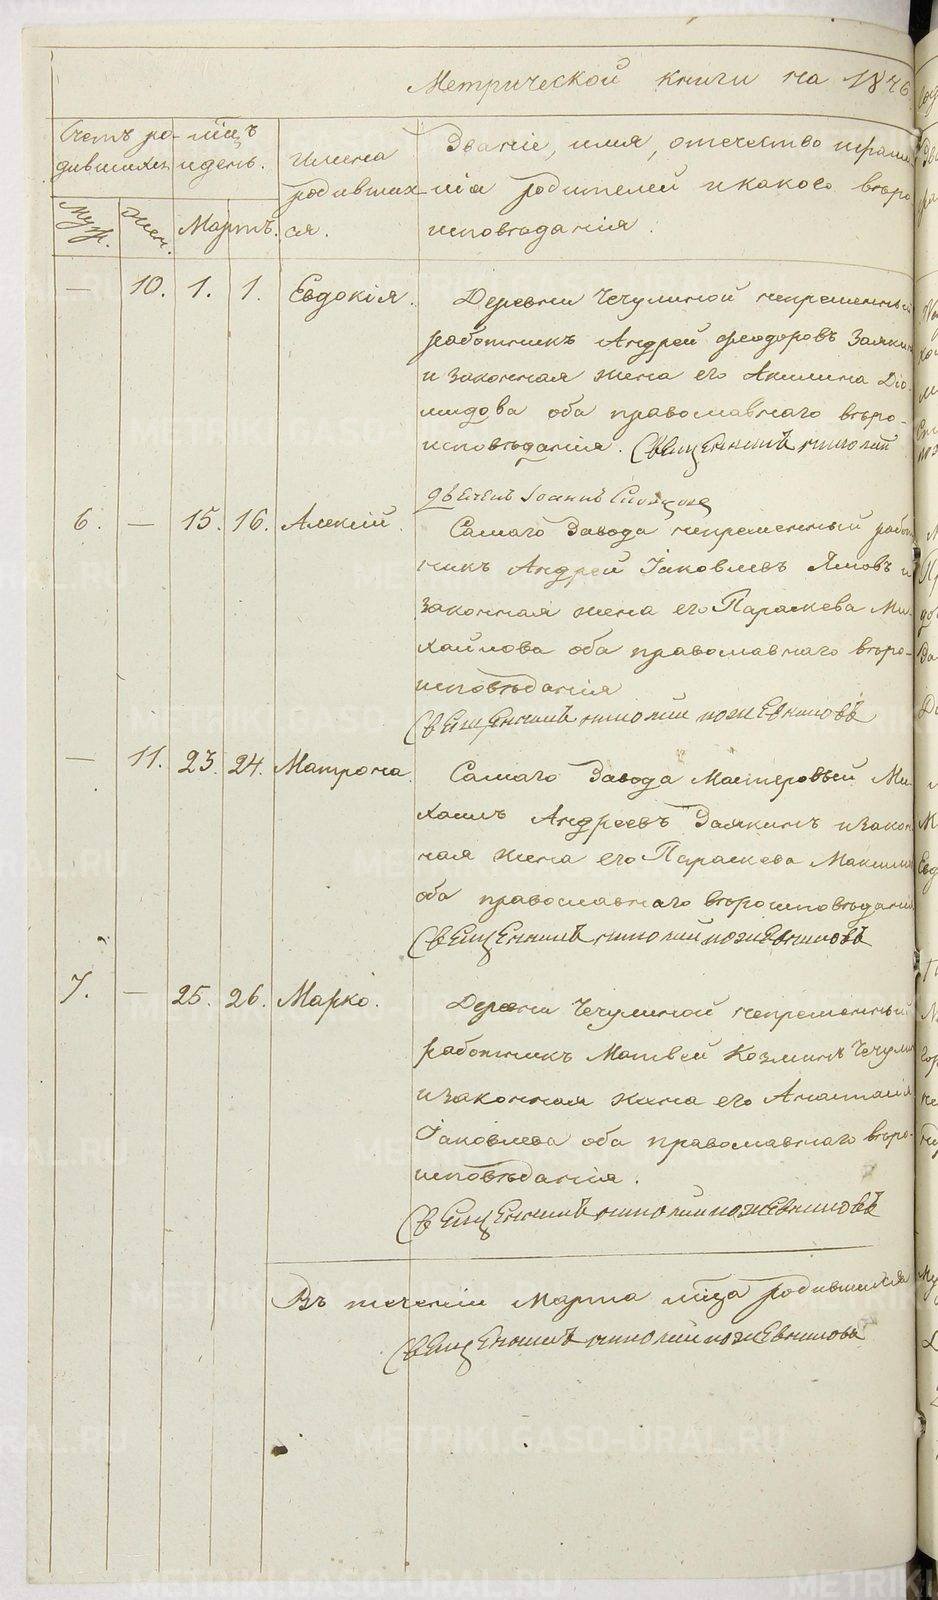 Метрической книги на 1846
Счетъ ро- мцъ
дившихся и день. Имена Званіе, имя, отечество и фами-
родивших- лія родителей и какого вѣро
Муж. Жен. Мартъ. ся. исповѣданія.
— 10. 1. 1. Евдокія. Деревни Чечулиной непременный
работникъ Андрей Феодоровъ Заякин
и законная жена его Акилина Діо-
мидова оба православнаго вѣро-
исповѣданія. Священникъ Николай
Дьячекъ Іоаннъ
6. — 15. 16. Алексій. Самаго Завода непременный работ
никъ Андрей Іаковлевъ Ямовъ и
законная жена его Параскева Ми-
хайлова оба православнаго вѣро-
исповѣданія
Священникъ Николай Кожевниковъ
— 11. 23. 24. Матрона. Самаго Завода Мастеровый Ми-
хаилъ Андреевъ Заякинъ и закон
ная жена его Параскева Максимо
оба православнаго вѣроисповѣдані
Священникъ Николай Кожевниковъ
7. — 25. 26. Марко. Деревни Чечулиной непременный
работникъ Матвей Козминъ Чечулин
и законная жена его Анастасія
Іаковлева оба православнаго вѣро-
исповѣданія.
Священникъ Николай Кожевниковъ
Въ теченіи Марта мца родившихся
Священникъ Николай Кожевниковъ
METRIKI.GASO-URAL.RU